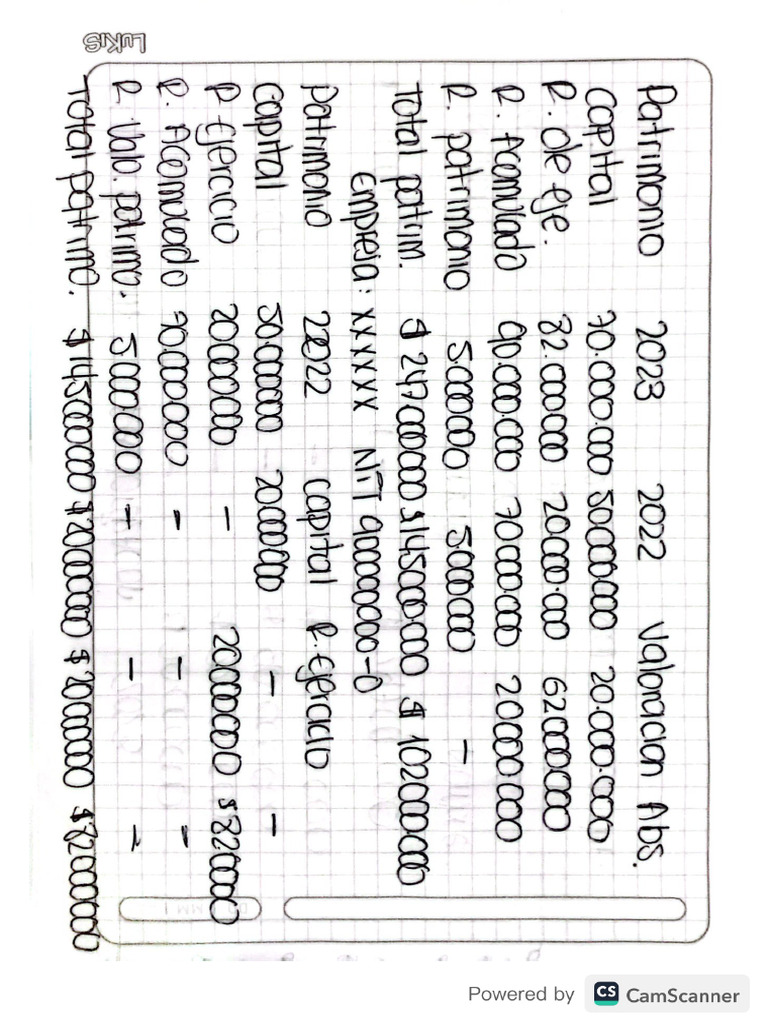 LUKIS
Patrimonio 2023 2022 Valoracion Abs.
Capital 70.000.000 50.000.000 20.000.000
R. de eje. 82.000.000 20.000.000 62000.000
R. Acomulado 90.000.000 70.000.000 20.000.000
R. patrimonio 5.000.000 5.000000 —
Total patrim. $ 247.000.000 $145000.000 $ 102000.000
Empresa: XXXXXX NIT 900000000-0
patrimonio 2022 capital R. Ejercicio
Capital 50.000000 20.000.000 — —
R Ejercicio 20.000.000 — 20.000.000 $ 820000
R. Acomulado 70.000.000 — — —
R. Valo. patrimo. 5.000.000 — — —
Total patrimo. $ 145000000 $2000000 $ 2000000 $82000000
Powered by CS CamScanner